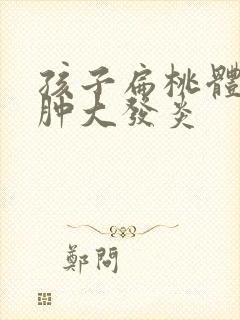 孩子扁桃體
肿大發炎
鄭問